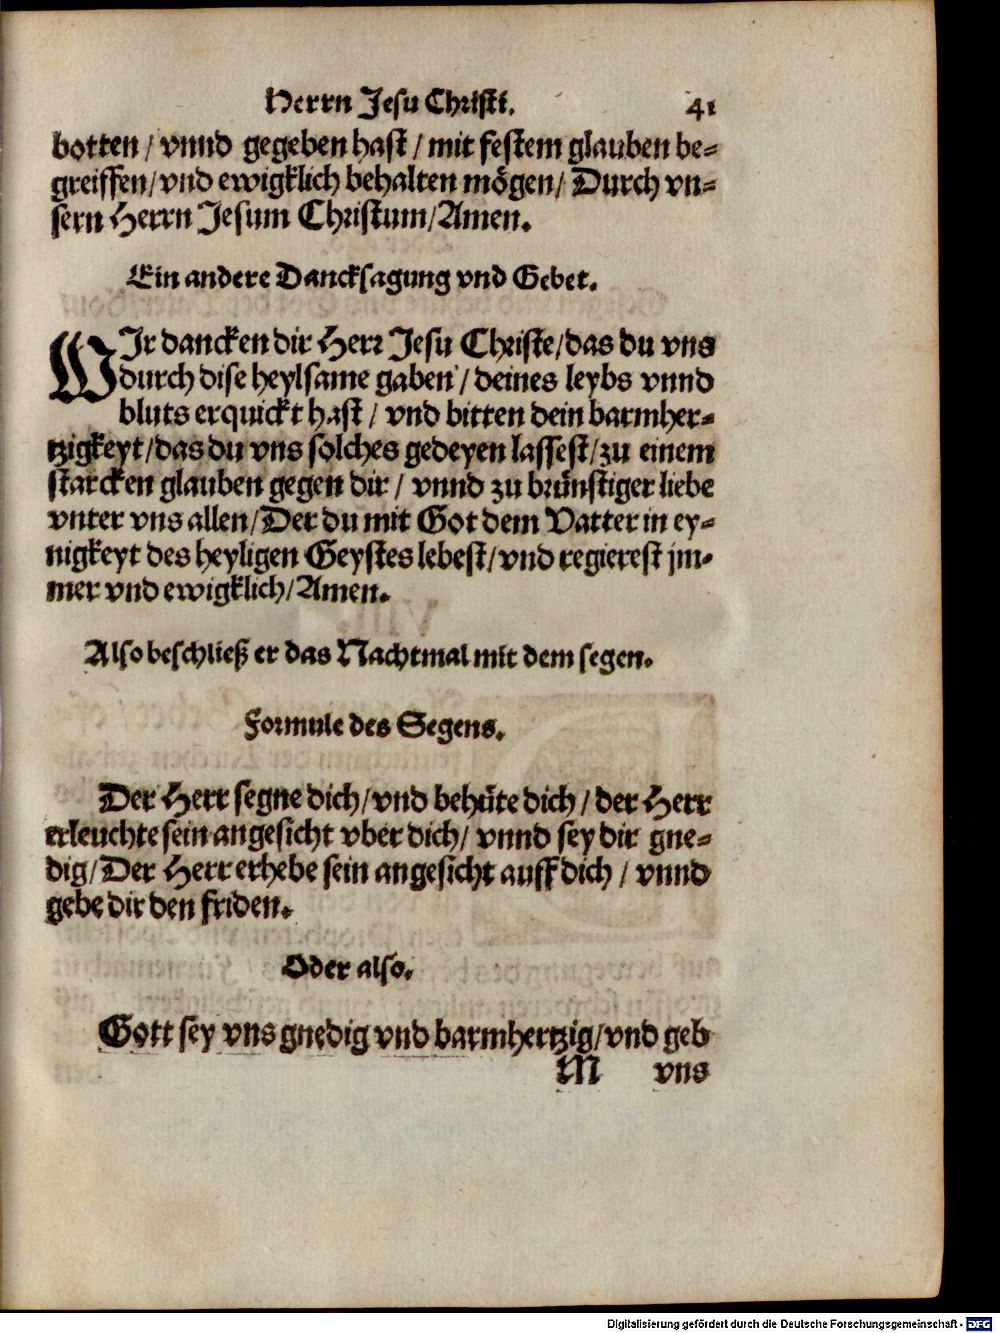 Herrn Jesu Christi. 41
botten / vnnd gegeben hast / mit festem glauben be-
greiffen/vnd ewigklich behalten mögen/ Durch vn-
sern Herrn Jesum Christum/Amen.
Ein andere Dancksagung vnd Gebet.
WIr dancken dir Herr Jesu Christe/das du vns
durch dise heylsame gaben / deines leybs vnnd
bluts erquickt hast / vnd bitten dein barmher-
tzigkeyt/das du vns solches gedeyen lassest/zu einem
starcken glauben gegen dir / vnnd zu brünstiger liebe
vnter vns allen/Der du mit Got dem Vatter in ey-
nigkeyt des heyligen Geystes lebest/vnd regierest jm-
mer vnd ewigklich/Amen.
Also beschließ er das Nachtmal mit dem segen.
Formule des Segens.
Der Herr segne dich/vnd behüte dich / der Herr
erleuchte sein angesicht vber dich/ vnnd sey dir gne-
dig/Der Herr erhebe sein angesicht auff dich / vnnd
gebe dir den friden.
Oder also.
Gott sey vns gnedig vnd barmhertzig/vnd geb
M vns
Digitalisierung gefördert durch die Deutsche Forschungsgemeinschaft - DFG